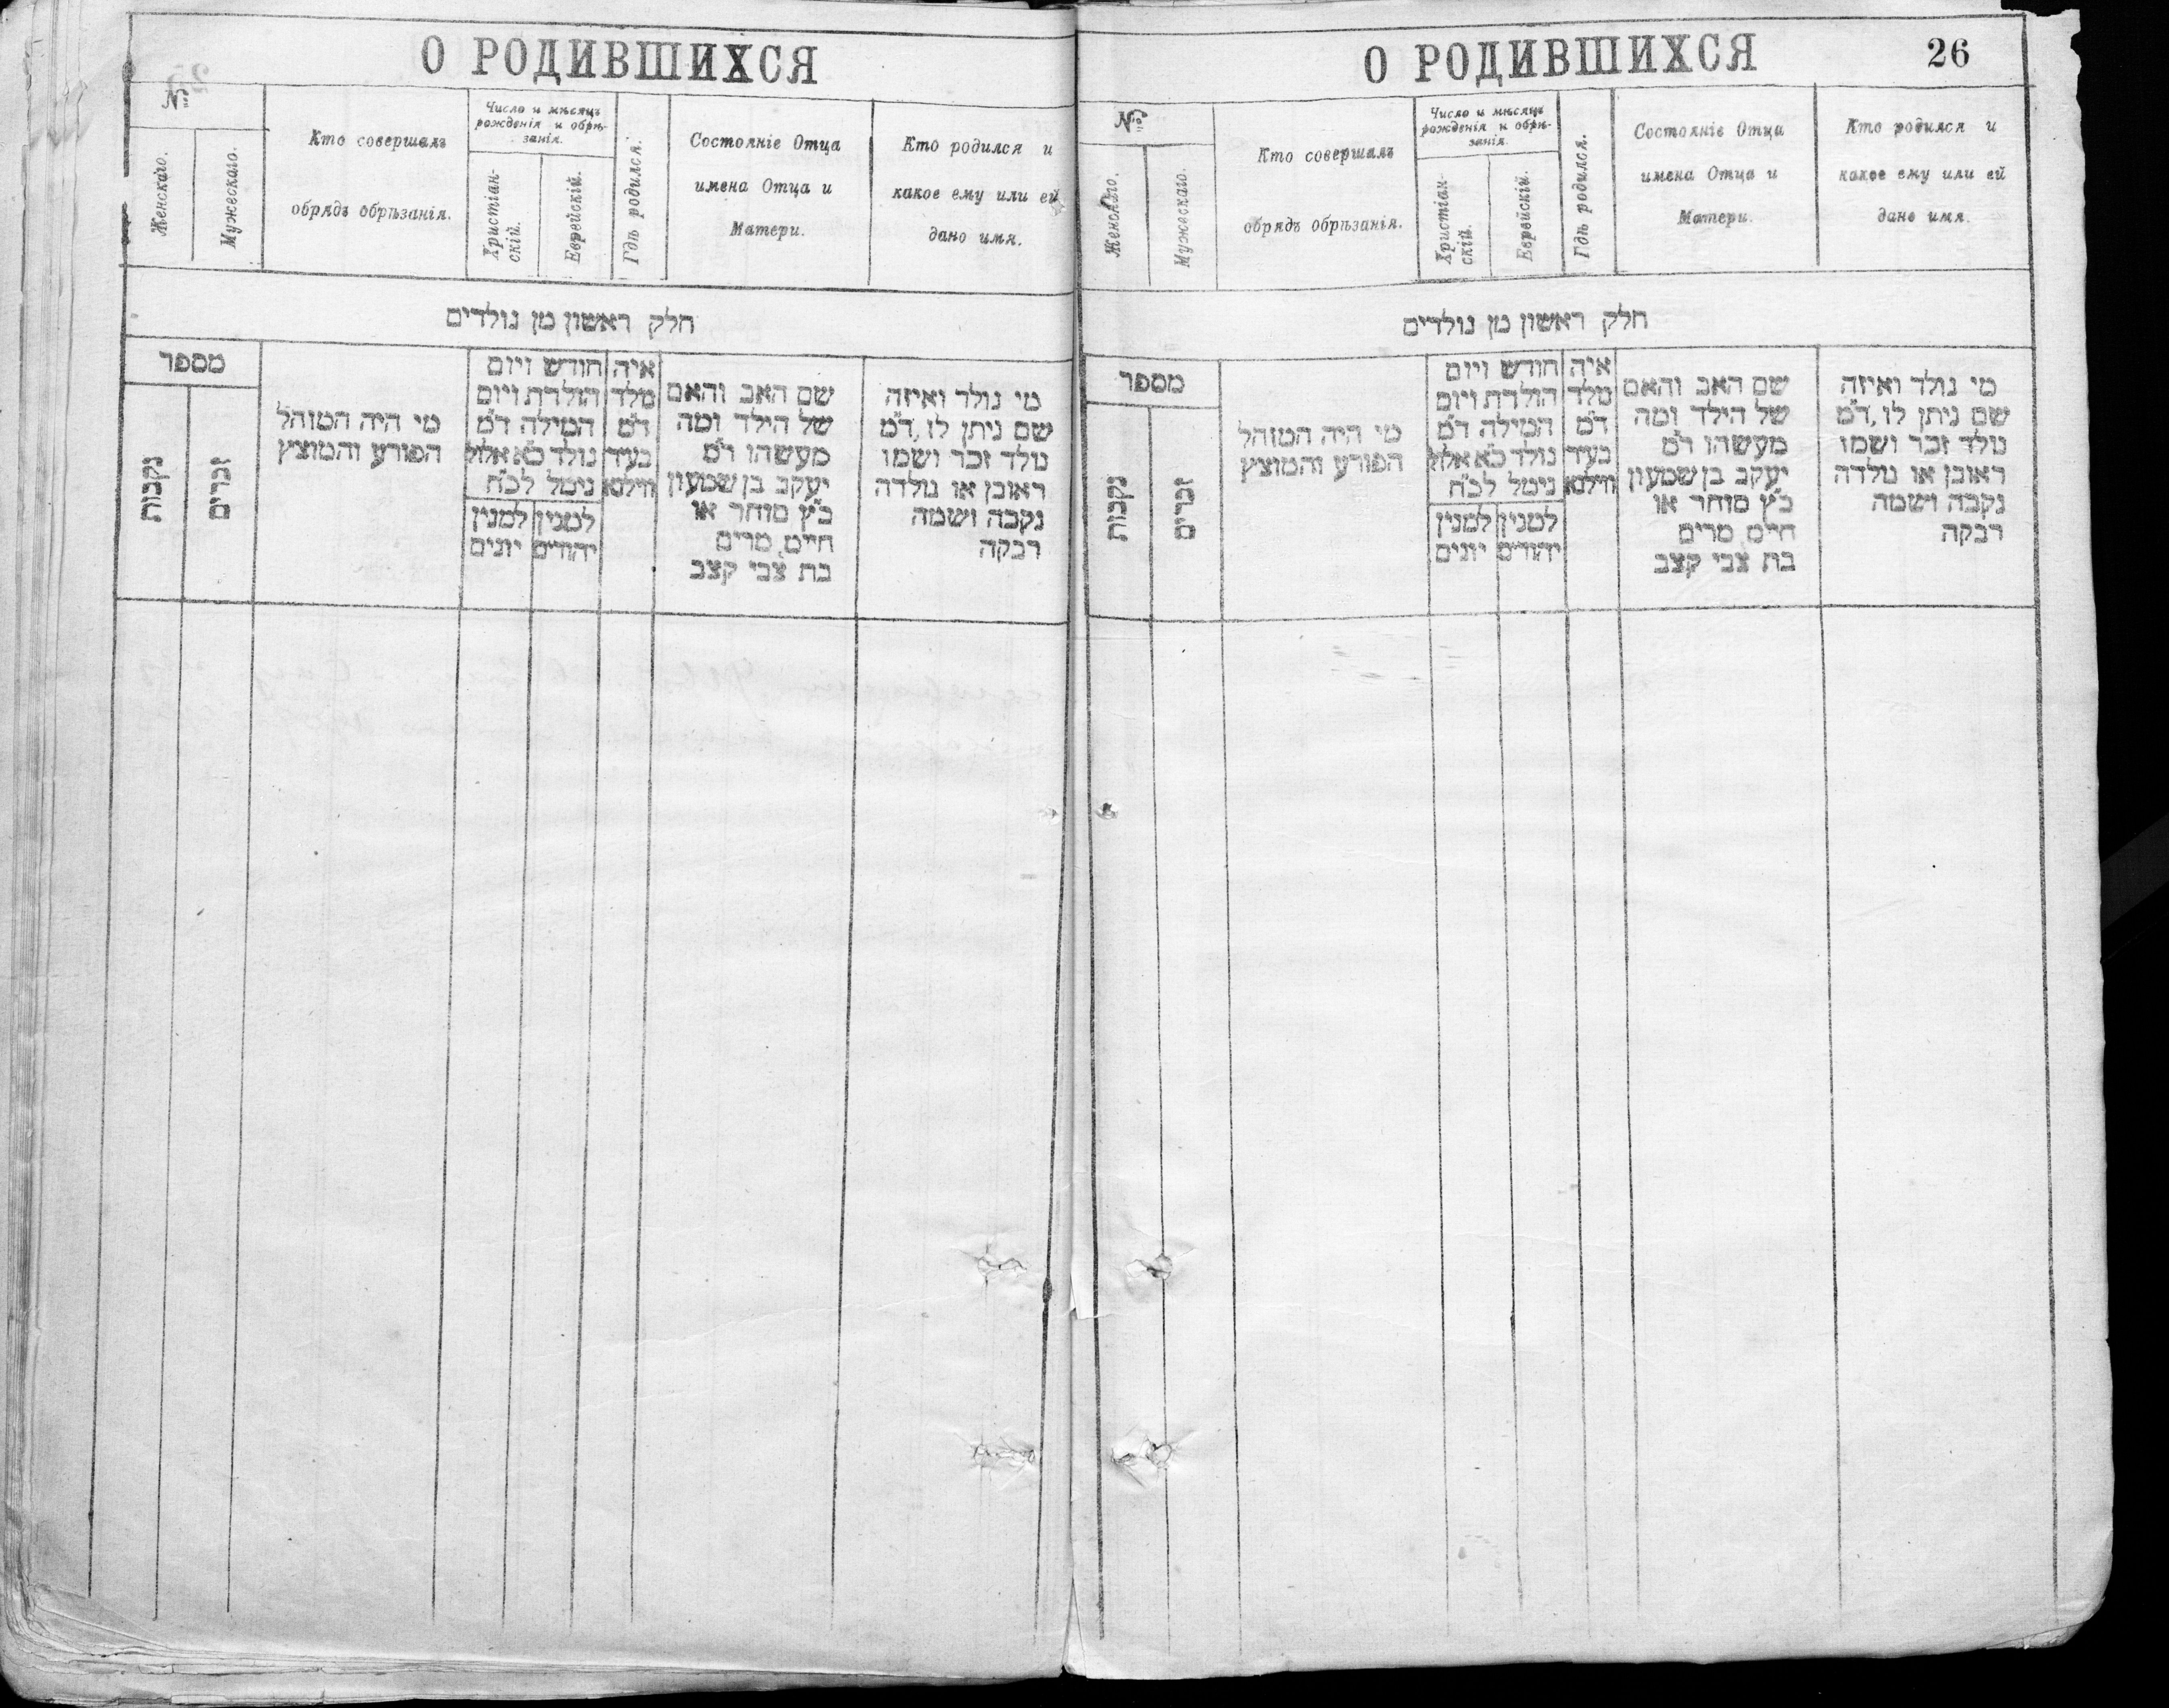 О РОДИВШИХСЯ
№
Женскаго.
Мужескаго.
Кто совершалъ
обрядъ обрѣзанія.
Число и мѣсяцъ
рожденія и обрѣ-
занія.
Христіан-
скій.
Еврейскій.
Гдѣ родился.
Состояніе Отца
имена Отца и
Матери.
Кто родился и
какое ему или ей
дано имя.
חלק ראשון מן נולדים
מספר
נקבות
זכרים
מי היה המוהל
הפורע והמוצץ
חודש ויום
הולדת ויום
המילה ד״מ
נולד כ״א אלול
נימל לכ״ח
למנין
יונים
למנין
יהודים
איה
מלד
ד״מ
בעיר
ווילנא
שם האב והאם
של הילד ומה
מעשהו ד״מ
יעקב בן שמעון
כ״ץ סוחר או
חייט, מרים
בת צבי קצב
מי נולד ואיזה
שם ניתן לו, ד״מ
נולד זכר ושמו
ראובן או נולדה
נקבה ושמה
רבקה
О РОДИВШИХСЯ
26
№
Женскаго.
Мужескаго.
Кто совершалъ
обрядъ обрѣзанія.
Число и мѣсяцъ
рожденія и обрѣ-
занія.
Христіан-
скій.
Еврейскій.
Гдѣ родился.
Состояніе Отца
имена Отца и
Матери.
Кто родился и
какое ему или ей
дано имя.
חלק ראשון מן נולדים
מספר
נקבות
זכרים
מי היה המוהל
הפורע והמוצץ
חודש ויום
הולדת ויום
המילה ד״מ
נולד כ״א אלול
נימל לכ״ח
למנין
יונים
למנין
יהודים
איה
מלד
ד״מ
בעיר
ווילנא
שם האב והאם
של הילד ומה
מעשהו ד״מ
יעקב בן שמעון
כ״ץ סוחר או
חייט, מרים
בת צבי קצב
מי נולד ואיזה
שם ניתן לו, ד״מ
נולד זכר ושמו
ראובן או נולדה
נקבה ושמה
רבקה